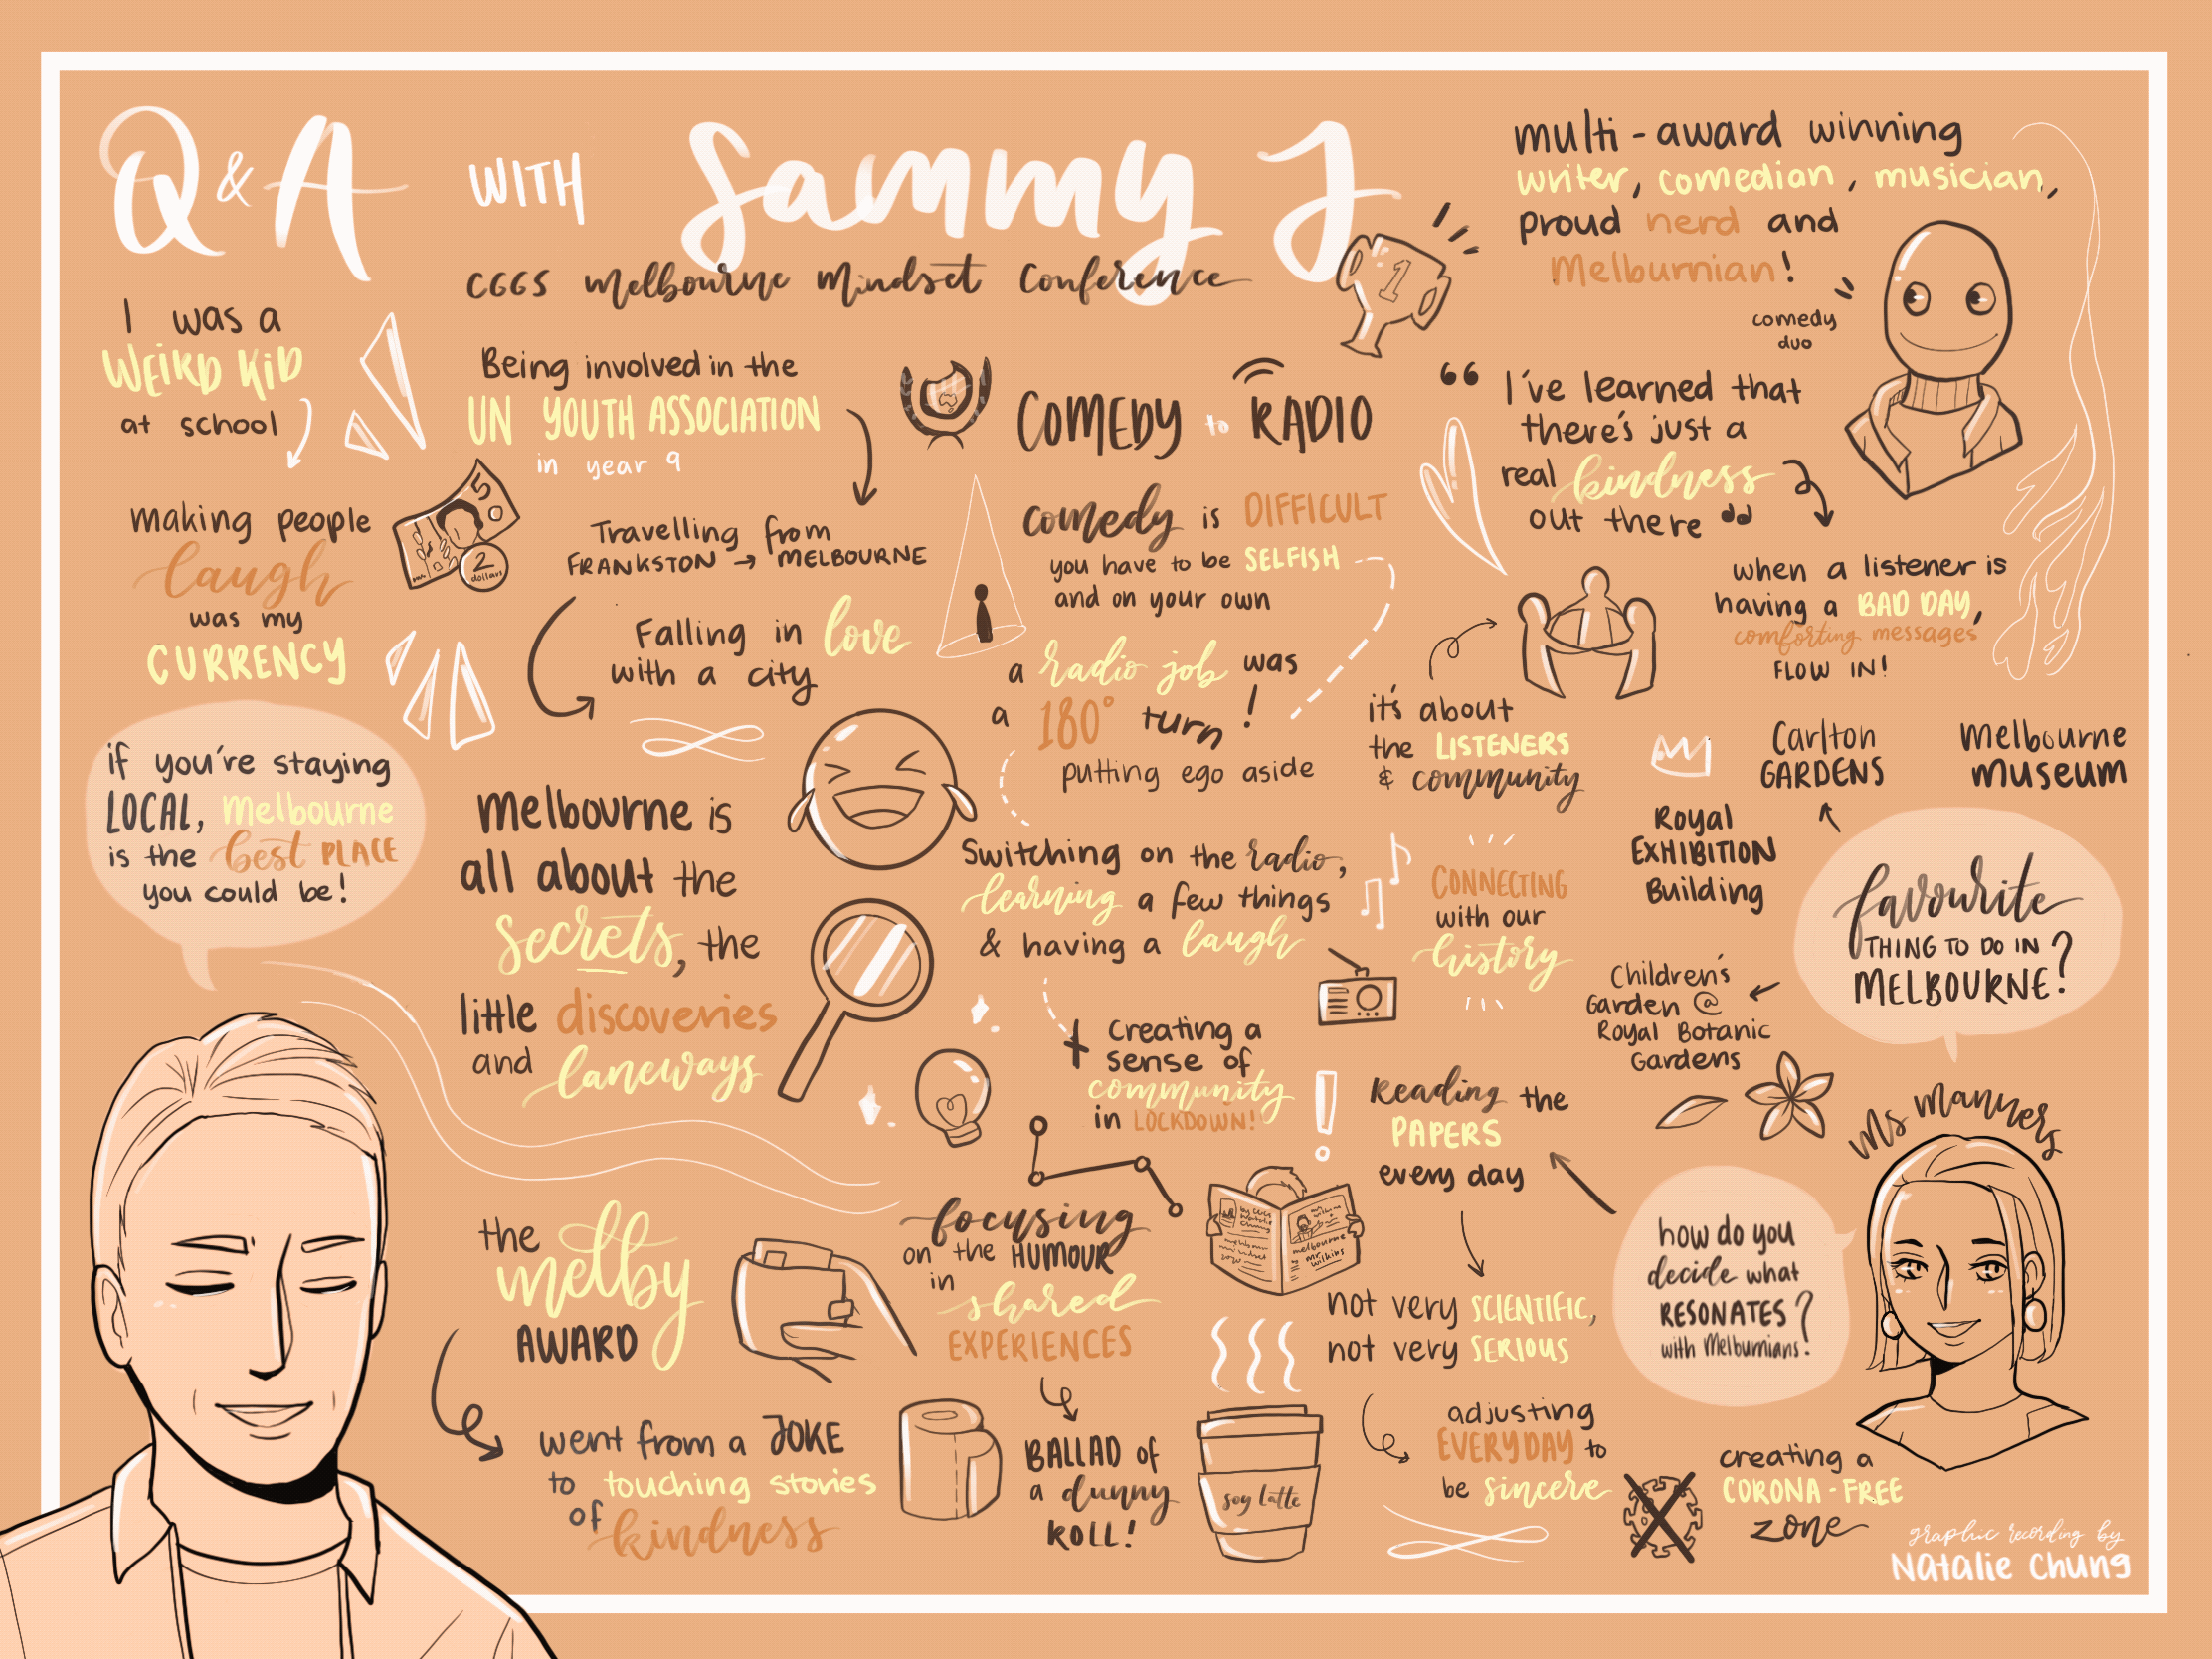 Q & A WITH Sammy J
CGGS Melbourne Mindset Conference
multi-award winning
writer, comedian, musician,
proud nerd and
Melburnian!
comedy
duo
I was a
WEIRD KID
at school
making people
laugh
was my
CURRENCY
5
2
dollars
1
Being involved in the
UN YOUTH ASSOCIATION
in year 9
Travelling from
FRANKSTON → MELBOURNE
Falling in love
with a city
COMEDY to RADIO
comedy is DIFFICULT
you have to be SELFISH
and on your own
a radio job was
a 180° turn!
putting ego aside
it's about
the LISTENERS
& community
“I've learned that
there's just a
real kindness
out there”
when a listener is
having a BAD DAY,
comforting messages
FLOW IN!
if you're staying
LOCAL, Melbourne
is the best PLACE
you could be!
melbourne is
all about the
secrets, the
little discoveries
and laneways
Switching on the radio,
learning a few things
& having a laugh
+ creating a
sense of
community
in LOCKDOWN!
CONNECTING
with our
history
Carlton
GARDENS
Melbourne
museum
Royal
EXHIBITION
Building
favourite
THING TO DO IN
MELBOURNE?
Children's
Garden @
Royal Botanic
Gardens
Ms Manners
how do you
decide what
RESONATES?
with Melburnians?
Reading the
PAPERS
every day
not very SCIENTIFIC,
not very SERIOUS
adjusting
EVERYDAY to
be sincere
creating a
CORONA-FREE
zone
the melby
AWARD
went from a JOKE
to touching stories
of kindness
focusing
on the HUMOUR
in shared
EXPERIENCES
BALLAD of
a dunny
ROLL!
soy latte
melbourne
mr.
wilkins
graphic recording by
Natalie Chung